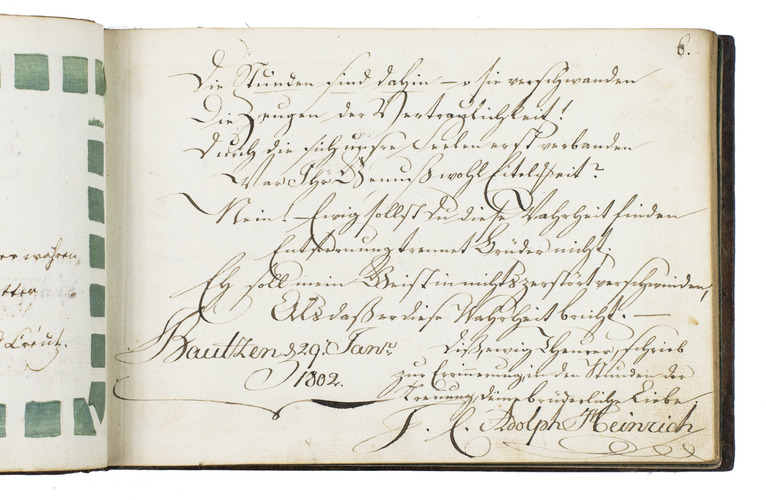 6.
Die Stunden sind dahin – o sie verschwanden
Die Zeugen der Vertraulichkeit!
Durch die sich unsre Seelen erst verbanden
War Ihr Genuß wohl Eitelkeit?
Nein! – Ewig sollst du diese Wahrheit finden
Entfernung trennet Brüder nicht;
Eh soll mein Geist in nichts zerstört verschwinden,
Als daß er diese Wahrheit bricht. –
Bautzen d 29. Janr
1802.
Dieß, ewig Theurer, schrieb
zur Erinnerung in den Stunden der
Trennung, deine brüderliche Liebe,
J. C. Adolph Heinrich
er währen,
d Creutz.